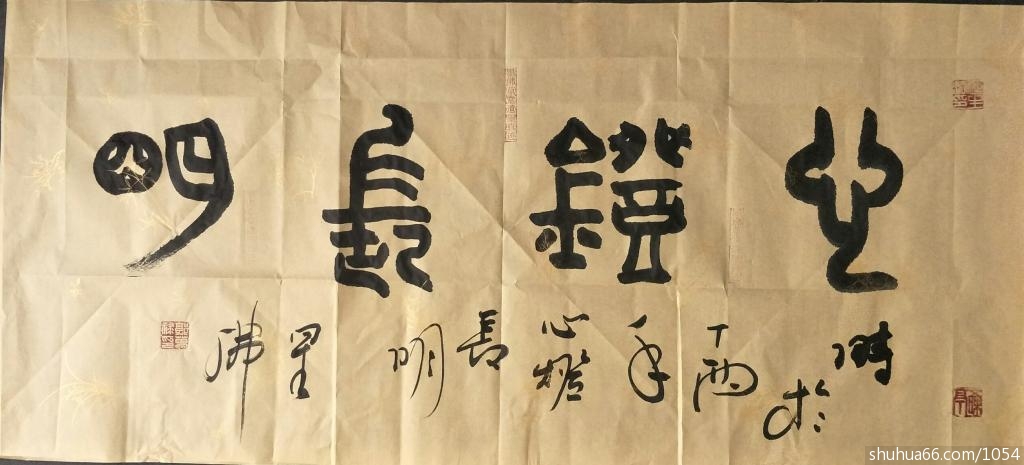 心鐙長明
時於丁酉年心燈長明星佛
shuhua66.com/1054